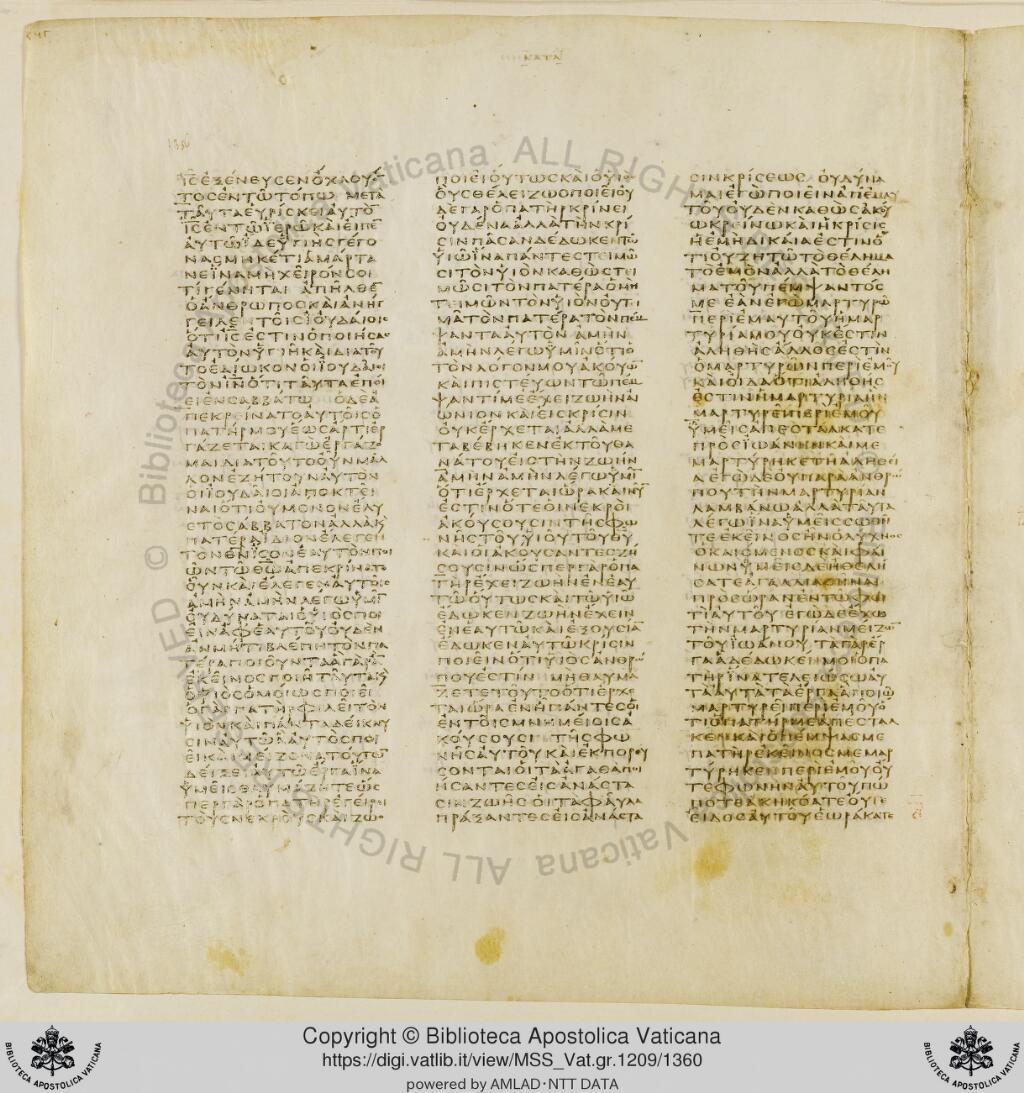 ΚΑΤΑ
1356
ΙϹΕΞΕΝΕΥϹΕΝΟΧΛΟΥΟ̅
ΤΟϹΕΝΤΩΤΟΠΩ ΜΕΤΑ
ΤΑΥΤΑΕΥΡΙϹΚΕΙΑΥΤΟ̅
ΙϹΕΝΤΩΙΕΡΩΚΑΙΕΙΠΕ̅
ΑΥΤΩΙΔΕΥΓΙΗϹΓΕΓΟ
ΝΑϹΜΗΚΕΤΙΑΜΑΡΤΑ
ΝΕΙΝΑΜΗΧΕΙΡΟΝϹΟΙ
ΤΙΓΕΝΗΤΑΙ ΑΠΗΛΘΕ̅
ΟΑΝΘΡΩΠΟϹΚΑΙΑΝΗΓ
ΓΕΙΛΕΝΤΟΙϹΙΟΥΔΑΙΟΙϹ
ΟΤΙΙϹΕϹΤΙΝΟΠΟΙΗϹΑϹ
ΑΥΤΟΝΥΓΙΗΚΑΙΔΙΑΤΟΥ
ΤΟΕΔΙΩΚΟΝΟΙΙΟΥΔΑΙΟΙ
ΤΟΝΙΝΟΤΙΤΑΥΤΑΕΠΟΙ
ΕΙΕΝϹΑΒΒΑΤΩ ΟΔΕΑ
ΠΕΚΡΕΙΝΑΤΟΑΥΤΟΙϹΟ
ΠΑΤΗΡΜΟΥΕΩϹΑΡΤΙΕΡ
ΓΑΖΕΤΑΙΚΑΓΩΕΡΓΑΖΟ
ΜΑΙΔΙΑΤΟΥΤΟΟΥΝΜΑΛ
ΛΟΝΕΖΗΤΟΥΝΑΥΤΟΝ
ΟΙΙΟΥΔΑΙΟΙΑΠΟΚΤΕΙ
ΝΑΙΟΤΙΟΥΜΟΝΟΝΕΛΥ
ΕΤΟϹΑΒΒΑΤΟΝΑΛΛΑΚ
ΠΑΤΕΡΑΙΔΙΟΝΕΛΕΓΕΝ
ΤΟΝΘΝΙϹΟΝΕΑΥΤΟΝΠΟΙ
ΩΝΤΩΘΩΑΠΕΚΡΙΝΑΤΟ
ΟΥΝΚΑΙΕΛΕΓΕΝΑΥΤΟΙϹ
ΑΜΗΝΑΜΗΝΛΕΓΩΥΜΙ̅
ΟΥΔΥΝΑΤΑΙΟΥΙΟϹΠΟΙ
ΕΙΝΑΦΕΑΥΤΟΥΟΥΔΕΝ
ΑΝΜΗΤΙΒΛΕΠΗΤΟΝΠΑ
ΤΕΡΑΠΟΙΟΥΝΤΑΑΓΑΡΑ̅
ΕΚΕΙΝΟϹΠΟΙΗΤΑΥΤΑΚ
ΟΥΙΟϹΟΜΟΙΩϹΠΟΙΕΙ
ΟΓΑΡΠΑΤΗΡΦΙΛΕΙΤΟΝ
ΥΙΟΝΚΑΙΠΑΝΤΑΔΕΙΚΝΥ
ϹΙΝΑΥΤΩΑΑΥΤΟϹΠΟΙ
ΕΙΚΑΙΜΕΙΖΟΝΑΤΟΥΤΩ̅
ΔΕΙΞΕΙΑΥΤΩΕΡΓΑΙΝΑ
ΥΜΕΙϹΘΑΥΜΑΖΗΤΕΩϹ
ΠΕΡΓΑΡΟΠΑΤΗΡΕΓΕΙΡΕΙ
ΤΟΥϹΝΕΚΡΟΥϹΚΑΙΖΩΟ
ΠΟΙΕΙΟΥΤΩϹΚΑΙΟΥΙΟϹ
ΟΥϹΘΕΛΕΙΖΩΟΠΟΙΕΙΟΥ
ΔΕΓΑΡΟΠΑΤΗΡΚΡΙΝΕΙ
ΟΥΔΕΝΑΑΛΛΑΤΗΝΚΡΙ
ϹΙΝΠΑϹΑΝΔΕΔΩΚΕΝΤΩ
ΥΙΩΙΝΑΠΑΝΤΕϹΤΕΙΜΩ
ϹΙΤΟΝΥΙΟΝΚΑΘΩϹΤΕΙ
ΜΩϹΙΤΟΝΠΑΤΕΡΑΟΜΗ
ΤΕΙΜΩΝΤΟΝΥΙΟΝΟΥΤΙ
ΜΑΤΟΝΠΑΤΕΡΑΤΟΝΠΕΜ
ΨΑΝΤΑΑΥΤΟΝ ΑΜΗΝ
ΑΜΗΝΛΕΓΩΥΜΙΝΟΤΙΟ
ΤΟΝΛΟΓΟΝΜΟΥΑΚΟΥΩ̅
ΚΑΙΠΙϹΤΕΥΩΝΤΩΠΕΜ
ΨΑΝΤΙΜΕΕΧΕΙΖΩΗΝΑΙ
ΩΝΙΟΝΚΑΙΕΙϹΚΡΙϹΙΝ
ΟΥΚΕΡΧΕΤΑΙΑΛΛΑΜΕ
ΤΑΒΕΒΗΚΕΝΕΚΤΟΥΘΑ
ΝΑΤΟΥΕΙϹΤΗΝΖΩΗΝ
ΑΜΗΝΑΜΗΝΛΕΓΩΥΜΙ̅
ΟΤΙΕΡΧΕΤΑΙΩΡΑΚΑΙΝΥ̅
ΕϹΤΙΝΟΤΕΟΙΝΕΚΡΟΙ
ΑΚΟΥϹΟΥϹΙΝΤΗϹΦΩ
ΝΗϹΤΟΥΥΙΟΥΤΟΥΘΥ
ΚΑΙΟΙΑΚΟΥϹΑΝΤΕϹΖΗ
ϹΟΥϹΙΝΩϹΠΕΡΓΑΡΟΠΑ
ΤΗΡΕΧΕΙΖΩΗΝΕΝΕΑΥ
ΤΩΟΥΤΩϹΚΑΙΤΩΥΙΩ
ΕΔΩΚΕΝΖΩΗΝΕΧΕΙΝ
ΕΝΕΑΥΤΩΚΑΙΕΞΟΥϹΙΑ̅
ΕΔΩΚΕΝΑΥΤΩΚΡΙϹΙΝ
ΠΟΙΕΙΝΟΤΙΥΙΟϹΑΝΘΡΩ
ΠΟΥΕϹΤΙΝ ΜΗΘΑΥΜΑ
ΖΕΤΕΤΟΥΤΟΟΤΙΕΡΧΕ
ΤΑΙΩΡΑΕΝΗΠΑΝΤΕϹΟΙ
ΕΝΤΟΙϹΜΝΗΜΕΙΟΙϹΑ
ΚΟΥϹΟΥϹΙ ΤΗϹΦΩ
ΝΗϹΑΥΤΟΥΚΑΙΕΚΠΟΡΕΥ
ϹΟΝΤΑΙΟΙΤΑΑΓΑΘΑΠΟΙ
ΗϹΑΝΤΕϹΕΙϹΑΝΑϹΤΑ
ϹΙΝΖΩΗϹΟΙΤΑΦΑΥΛΑ
ΠΡΑΞΑΝΤΕϹΕΙϹΑΝΑϹΤΑ
ϹΙΝΚΡΙϹΕΩϹ ΟΥΔΥΝΑ
ΜΑΙΕΓΩΠΟΙΕΙΝΑΠΕΜΑΥ
ΤΟΥΟΥΔΕΝΚΑΘΩϹΑΚΟΥ
ΩΚΡΕΙΝΩΚΑΙΗΚΡΙϹΙϹ
ΗΕΜΗΔΙΚΑΙΑΕϹΤΙΝΟ
ΤΙΟΥΖΗΤΩΤΟΘΕΛΗΜΑ
ΤΟΕΜΟΝΑΛΛΑΤΟΘΕΛΗ
ΜΑΤΟΥΠΕΜΨΑΝΤΟϹ
ΜΕΕΑΝΕΓΩΜΑΡΤΥΡΩ
ΠΕΡΙΕΜΑΥΤΟΥΗΜΑΡ
ΤΥΡΙΑΜΟΥΟΥΚΕϹΤΙΝ
ΑΛΗΘΗϹΑΛΛΟϹΕϹΤΙΝ
ΟΜΑΡΤΥΡΩΝΠΕΡΙΕΜΟΥ
ΚΑΙΟΙΔΑΟΤΙΑΛΗΘΗϹ
ΕϹΤΙΝΗΜΑΡΤΥΡΙΑΗΝ
ΜΑΡΤΥΡΕΙΠΕΡΙΕΜΟΥ
ΥΜΕΙϹΑΠΕϹΤΑΛΚΑΤΕ
ΠΡΟϹΙΩΑΝΗΝΚΑΙΜΕ
ΜΑΡΤΥΡΗΚΕΤΗΑΛΗΘΕΙΑ
ΔΕΓΩΔΕΟΥΠΑΡΑΑΝΘΡΩ
ΠΟΥΤΗΝΜΑΡΤΥΡΙΑΝ
ΛΑΜΒΑΝΩΑΛΛΑΤΑΥΤΑ
ΛΕΓΩΙΝΑΥΜΕΙϹϹΩΘΗ
ΤΕΕΚΕΙΝΟϹΗΝΟΛΥΧΝΟϹ
ΟΚΑΙΟΜΕΝΟϹΚΑΙΦΑΙ
ΝΩΝΥΜΕΙϹΔΕΗΘΕΛΗ
ϹΑΤΕΑΓΑΛΛΙΑΘΗΝΑΙ
ΠΡΟϹΩΡΑΝΕΝΤΩΦΩ
ΤΙΑΥΤΟΥΕΓΩΔΕΕΧΩ
ΤΗΝΜΑΡΤΥΡΙΑΝΜΕΙΖΩ
ΤΟΥΙΩΑΝΟΥ ΤΑΓΑΡΕΡ
ΓΑΑΔΕΔΩΚΕΝΜΟΙΟΠΑ
ΤΗΡΙΝΑΤΕΛΕΙΩϹΩΑΥ
ΤΑΑΥΤΑΤΑΕΡΓΑΑΠΟΙΩ
ΜΑΡΤΥΡΕΙΠΕΡΙΕΜΟΥΟ
ΤΙΟΠΑΤΗΡΜΕΑΠΕϹΤΑΛ
ΚΕΝΚΑΙΟΠΕΜΨΑϹΜΕ
ΠΑΤΗΡΕΚΕΙΝΟϹΜΕΜΑΡ
ΤΥΡΗΚΕΝΠΕΡΙΕΜΟΥΟΥ
ΤΕΦΩΝΗΝΑΥΤΟΥΠΩ
ΠΟΤΕΑΚΗΚΟΑΤΕΟΥΤΕ
ΕΙΔΟϹΑΥΤΟΥΕΩΡΑΚΑΤΕ
© Biblioteca Apostolica Vaticana ALL RIGHTS RESERVED
Copyright © Biblioteca Apostolica Vaticana
https://digi.vatlib.it/view/MSS_Vat.gr.1209/1360
powered by AMLAD·NTT DATA
BIBLIOTECA APOSTOLICA VATICANA
BIBLIOTECA APOSTOLICA VATICANA